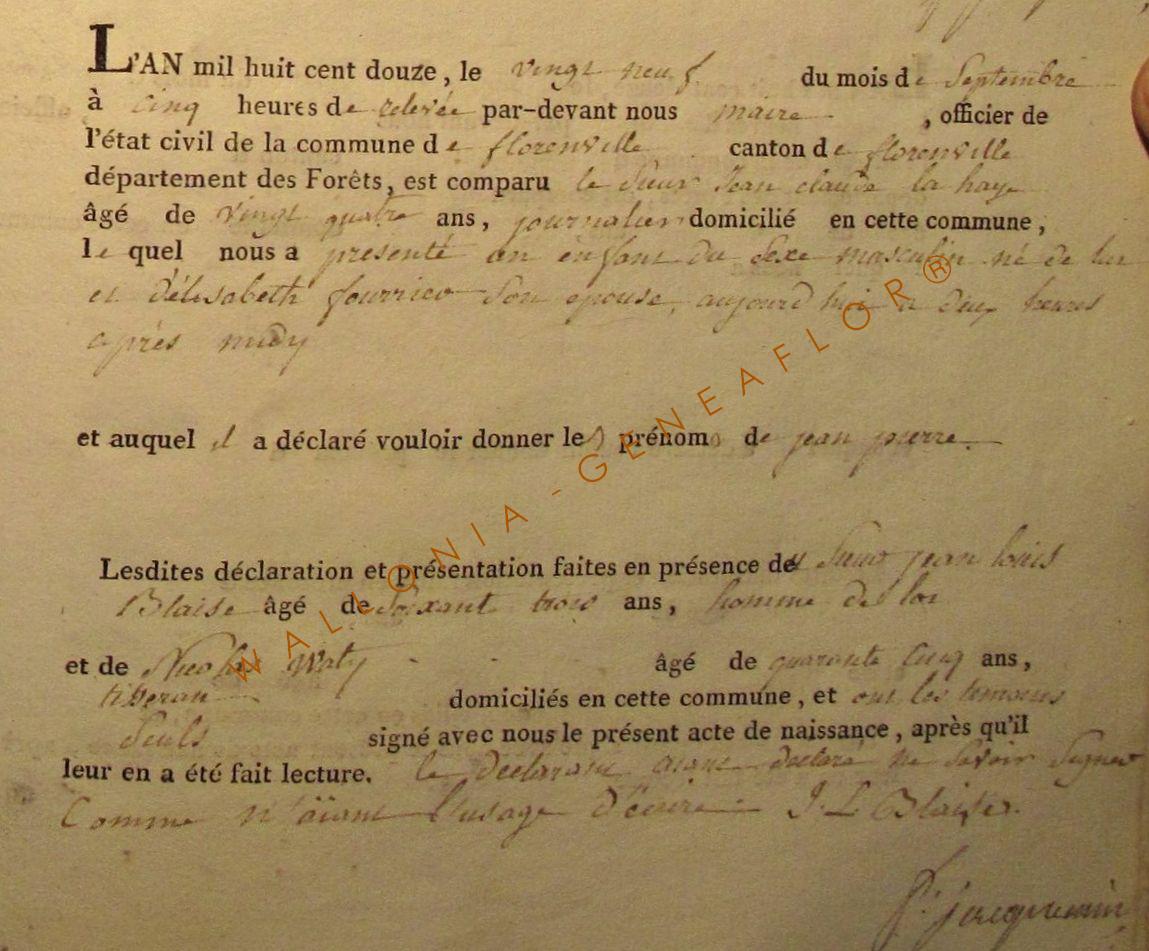 L'AN mil huit cent douze, le vingt neuf du mois de Septembre
à cinq heures de relevée par-devant nous maire , officier de
l'état civil de la commune de florenville canton de florenville
département des Forêts, est comparu le Sieur Jean claude la haye
âgé de vingt quatre ans, journalier domicilié en cette commune,
le quel nous a presenté un enfant du Sexe masculin né de lui
et d'élisabeth Son epouse, aujourd'hui a deux heures
après midy
et auquel il a déclaré vouloir donner les prénoms de jean pierre.
Lesdites déclaration et présentation faites en présence de Sieur jean louis
Blaise âgé de Soixant trois ans, homme de loi
et de Nicolas Waty âgé de quarante cinq ans,
domiciliés en cette commune, et ont les temoins
Seuls signé avec nous le présent acte de naissance, après qu'il
leur en a été fait lecture. le declarant aiant declaré ne Savoir Signer
Comme n'aïant l'usage d'écrire J. L Blaise.
jacquemin
WALLONIA-GENEAFLOR®